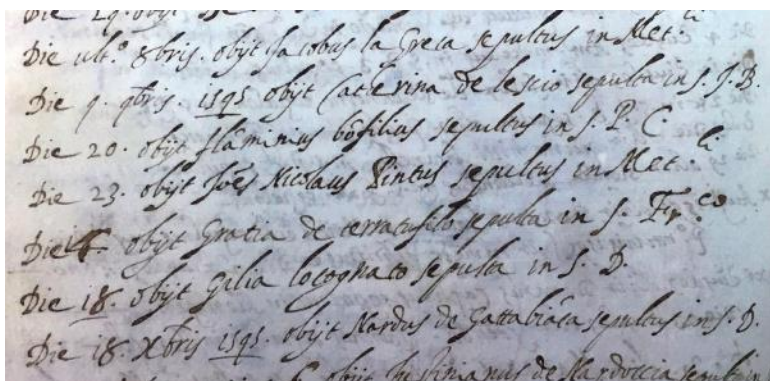 Die 29. obijt
Die ult.º 8bris. obijt Jacobus la Greca sepultus in Met.li
Die 9. 9bris. 1595 obijt Caterina de lescio sepulta in s. J. B.
Die 20. obijt flâminius bôsilius sepultus in s. P. C.
Die 23. obijt Joẽs Nicolaus Pintus sepultus in Met.li
Die obijt Gratia de terratusilo sepulta in s. Fr.co
Die 18. obijt Gilia locognato sepulta in s. D.
Die 18. Xbris 1595. obijt Nardus de Gattabiâca sepultus in s. D.
obijt de Nardoccia sepult in